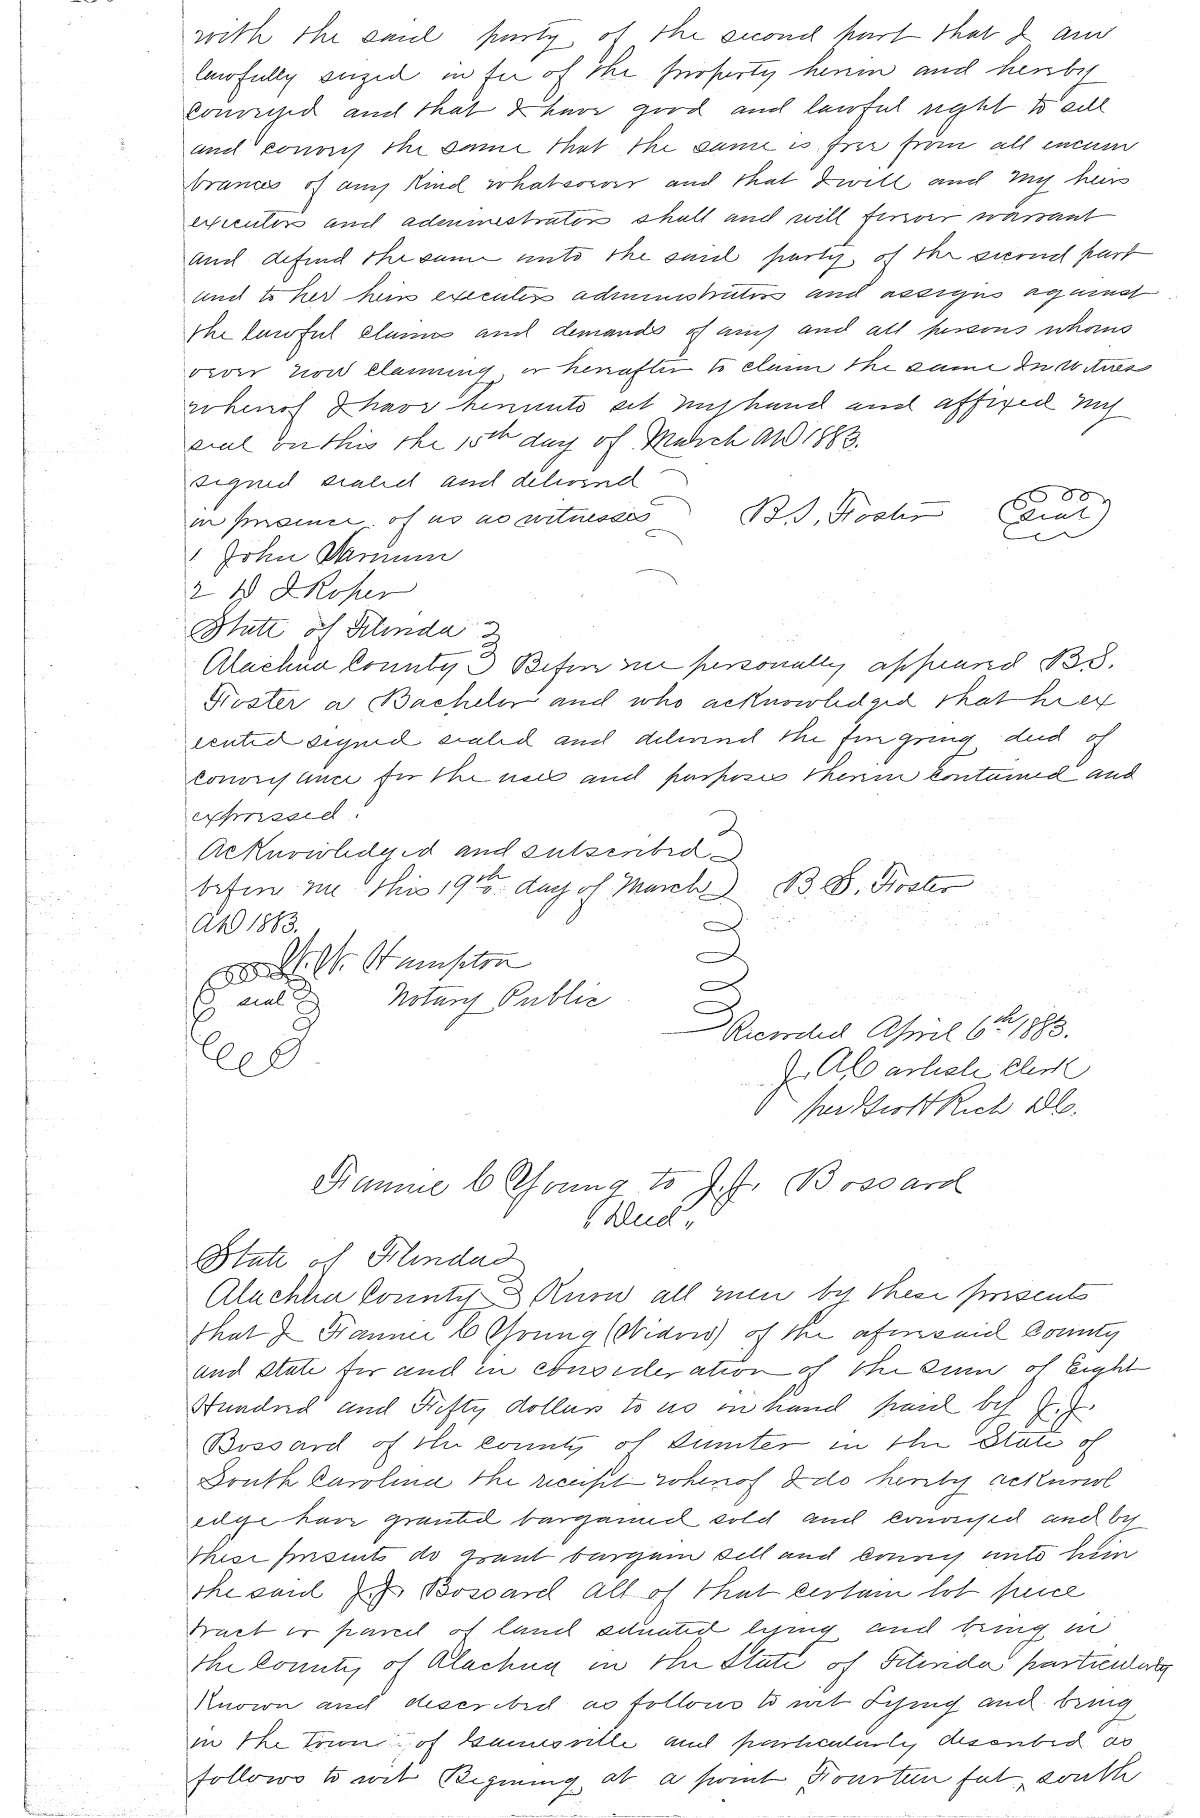 with the said party of the second part that I am
lawfully seized in fee of the property herein and hereby
conveyed and that I have good and lawful right to sell
and convey the same that the same is free from all encum
brances of any kind whatsoever and that I will and my heirs
executors and administrators shall and will forever warrant
and defend the same unto the said party of the second part
and to her heirs executors administrators and assigns against
the lawful claims and demands of any and all persons whoms
oever now claiming or hereafter to claim the same In witness
whereof I have hereunto set my hand and affixed my
seal on this the 15th day of March AD 1883.
signed sealed and delivered
in presence of us as witnesses B.S. Foster (seal)
1 John Varnum
2 Roper
State of Florida
Alachua County Before me personally appeared B.S.
Foster a Bachelor and who acknowledged that he ex
ecuted signed sealed and delivered the foregoing deed of
conveyance for the uses and purposes therein contained and
expressed.
Acknowledged and subscribed
before me this 19th day of March B.S. Foster
AD 1883.
W.W. Hampton
seal Notary Public
Recorded April 6th 1883.
J. A Carlisle Clerk
per Scott Rich DC.
Fannie C Young to J.J. Bossard
"Deed"
State of Florida
Alachua County Know all men by these presents
that I Fannie C Young (Widow) of the aforesaid County
and state for and in consideration of the sum of Eight
Hundred and Fifty dollars to us in hand paid by J.J.
Bossard of the county of Sumter in the State of
South Carolina the receipt whereof I do hereby acknowl
edge have granted bargained sold and conveyed and by
these presents do grant bargain sell and convey unto him
the said J.J. Bossard all of that certain lot piece
tract or parcel of land situated lying and being in
the County of Alachua in the State of Florida particularly
known and described as follows to wit Lying and being
in the Town of Gainesville and particularly described as
follows to wit Begining at a point Fourteen feet south